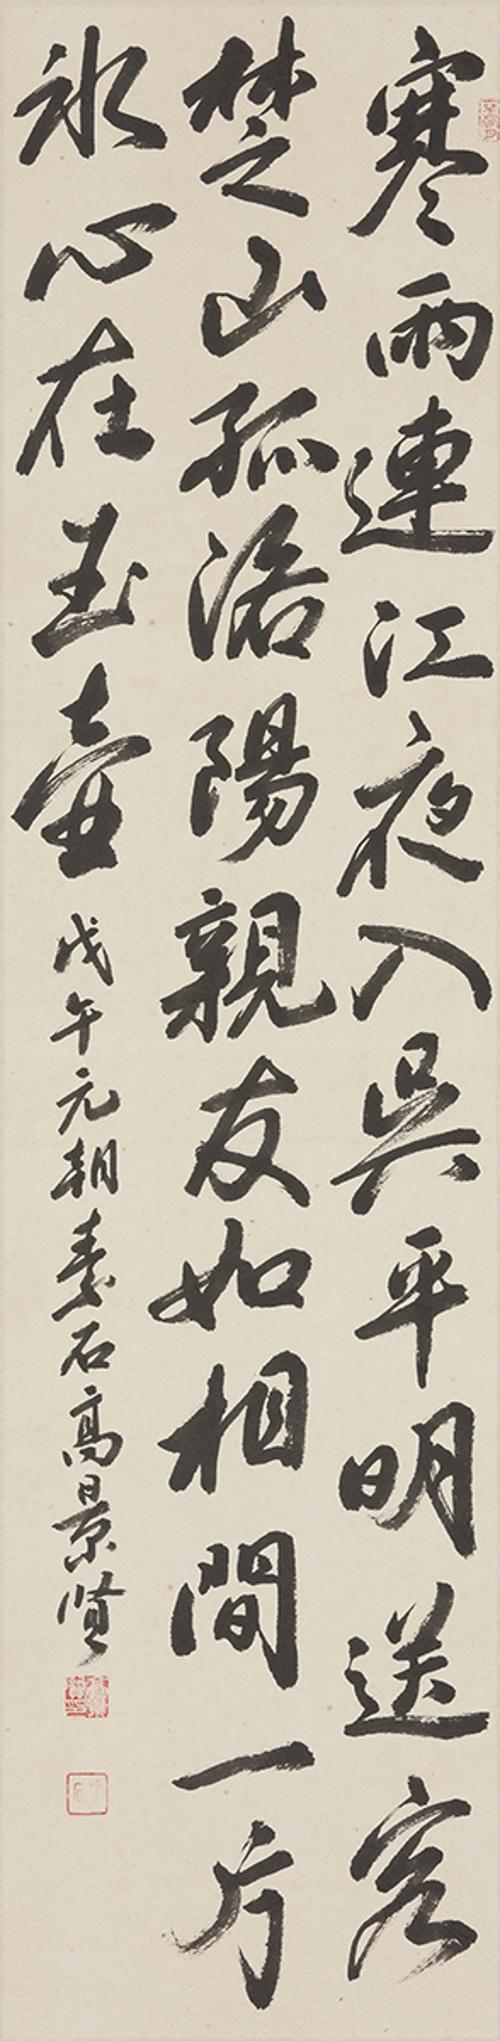 寒雨連江夜入吳平明送客
楚山孤洛陽親友如相間一片
氷心在玉壺
戊午元朝素石高景賢